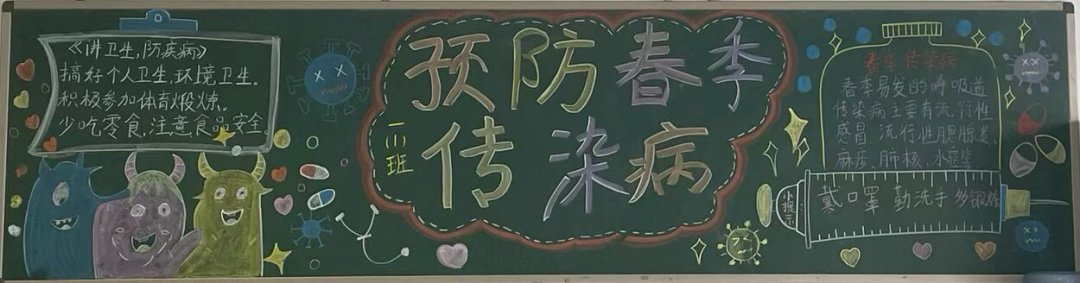 《讲卫生,防疾病》
搞好个人卫生,环境卫生。
积极参加体育煅炼。
少吃零食,注意食品安全
预防春季
传染病
一(1)班
春季传染病
春季易发的呼吸道
传染病主要有流行性
感冒、流行性
麻疹、肺核、水痘等
小提示
戴口罩 勤洗手 多锻炼